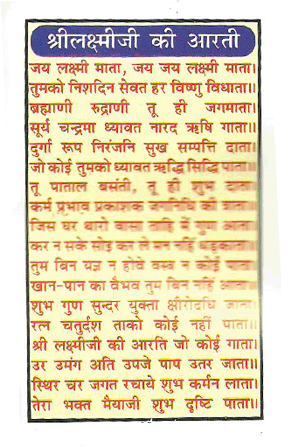 श्रीलक्ष्मीजी की आरती
जय लक्ष्मी माता, जय जय लक्ष्मी माता।
तुमको निशदिन सेवत हर विष्णु विधाता।।
ब्रह्माणी रुद्राणी तू ही जगमाता।
सूर्य चन्द्रमा ध्यावत नारद ऋषि गाता।।
दुर्गा रूप निरंजनि सुख सम्पत्ति दाता।
जो कोई तुमको ध्यावत ऋद्धि सिद्धि पाता।।
तू पाताल बसंती, तू ही शुभ दाता।
कर्म प्रभाव प्रकाशक
जिस घर थारो वासा ताहि में गुण आता।
कर न सके सोइ कर ले मन नहीं धड़काता।।
तुम बिन यज्ञ न होवे वस्त्र न कोई पाता।
खान-पान का वैभव तुम बिन नहीं आता।।
शुभ गुण सुन्दर युक्ता क्षीरोदधि जाता।
रत्न चतुर्दश ताको कोई नहीं पाता।।
श्री लक्ष्मीजी की आरति जो कोई गाता।
उर उमंग अति उपजे पाप उतर जाता।।
स्थिर चर जगत रचाये शुभ कर्मन लाता।
तेरा भक्त मैयाजी शुभ दृष्टि पाता।।